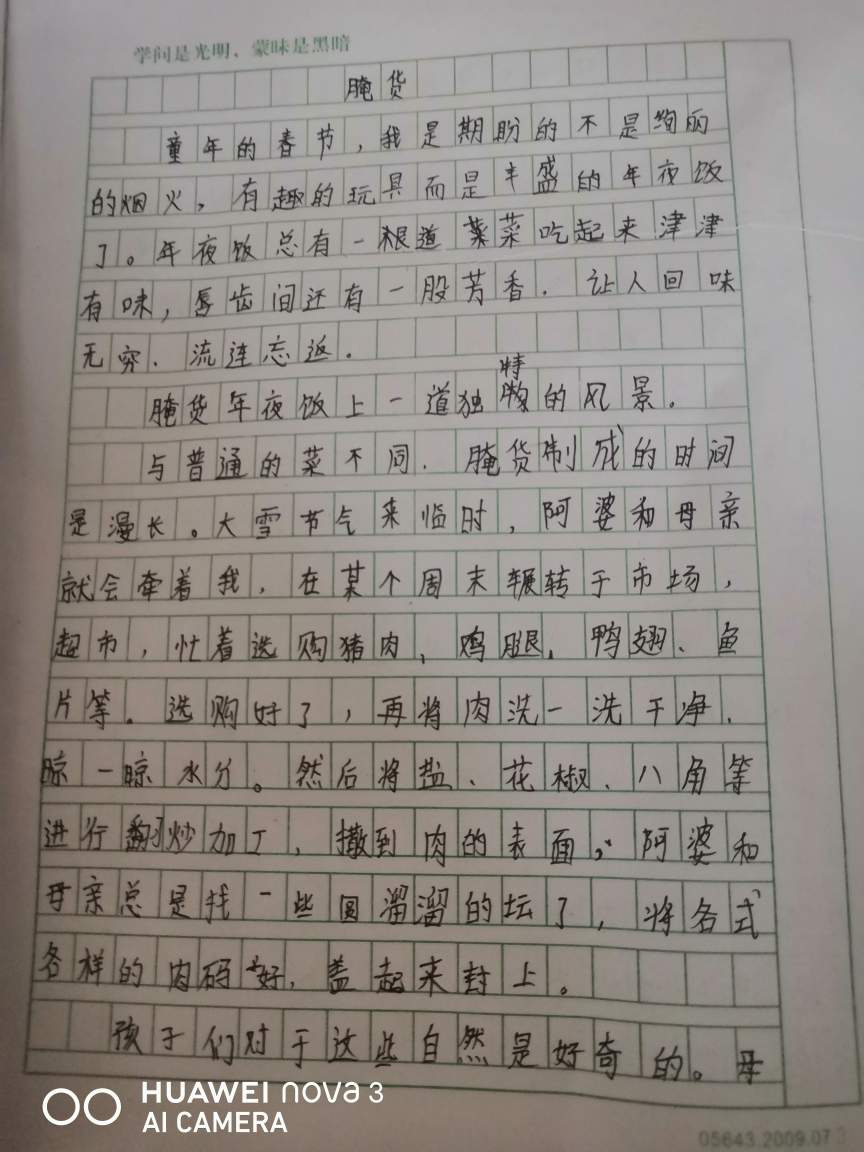 学问是光明、蒙昧是黑暗
腌货
童年的春节，我是期盼的不是绚丽
的烟火，有趣的玩具而是丰盛的年夜饭
了。年夜饭总有一根道菜吃起来津津
有味，唇齿间还有一股芳香．让人回味
无穷．流连忘返．
特
腌货年夜饭上一道独的风景．
与普通的菜不同．腌货制成的时间
是漫长。大雪节气来临时，阿婆和母亲
就会牵着我，在某个周末辗转于市场，
超市，忙着选购猪肉，鸡腿，鸭翅、鱼
片等．选购好了，再将肉洗一洗干净．
晾一晾水分。然后将盐、花椒、八角等
进行翻炒加工，撒到肉的表面，阿婆和
母亲总是找一些圆溜溜的坛了，将各式
各样的肉码好，盖起来封上。
孩子们对于这些自然是好奇的。母
HUAWEI nova 3
AI CAMERA
05643.2009.07